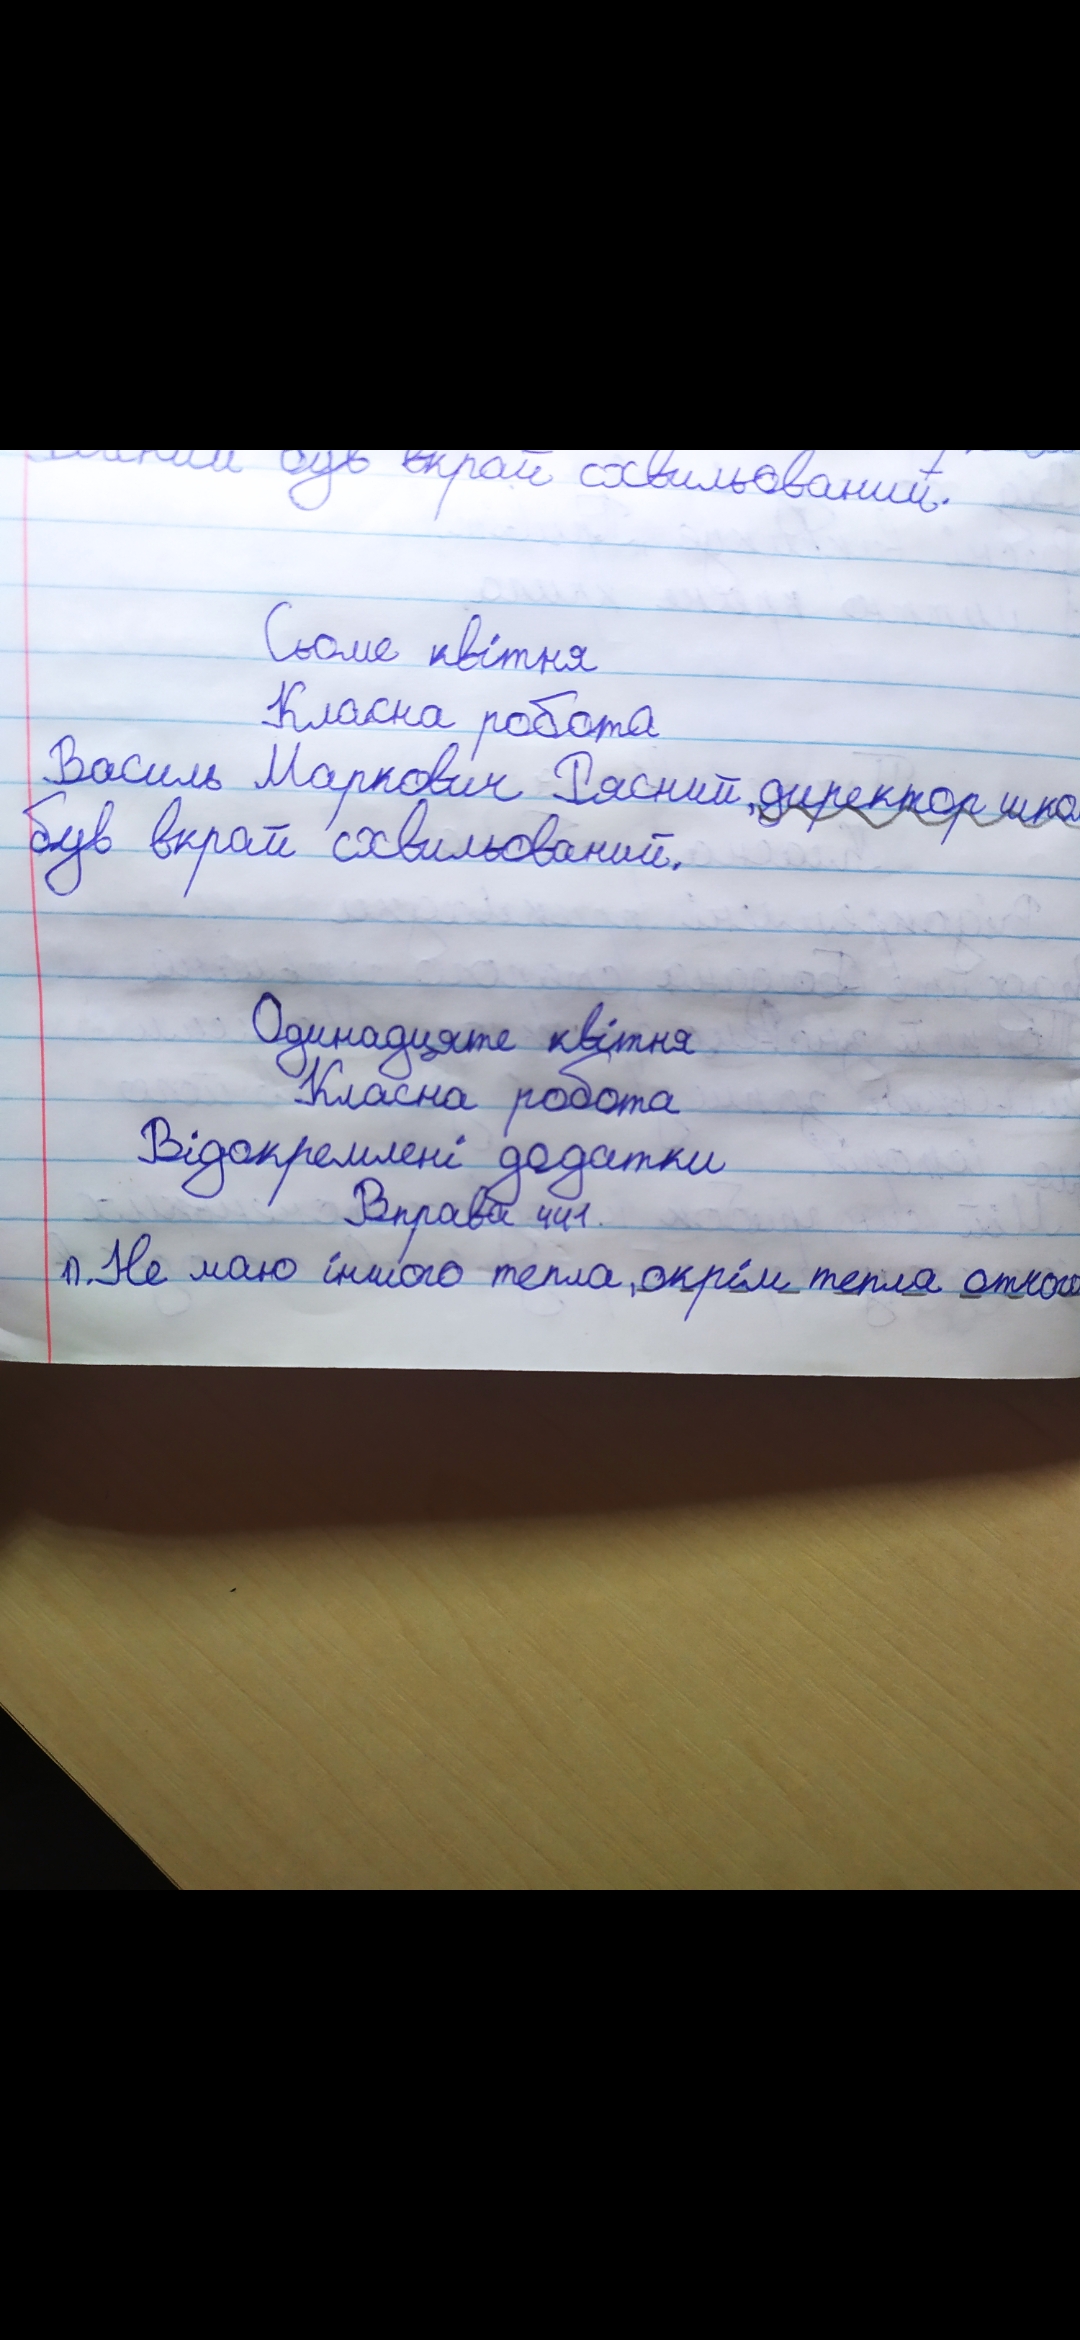 був вкрай схвильований.
Сьоме квітня
Класна робота
Василь Маркович Рясний, директор шко
був вкрай схвильований.
Одинадцяте квітня
Класна робота
Відокремлені додатки
Вправа 441.
П. Не маю іншого тепла, окрім тепла отчого